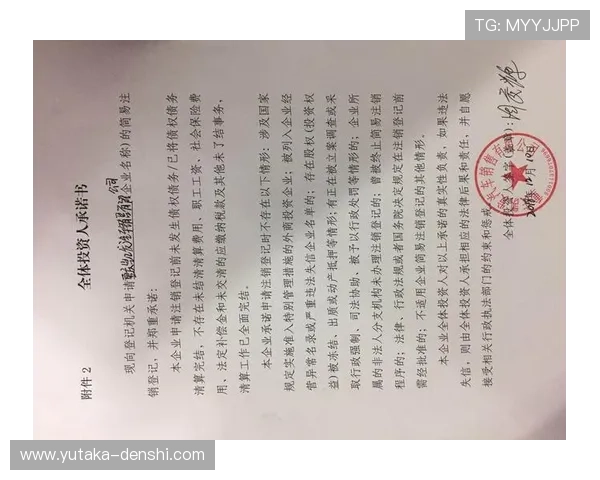 TG: MYYJJPP
附件2
全体投资人承诺书
现向登记机关申请(企业名称)的简易注
销登记，并郑重承诺：
本企业申请注销登记前未发生债权债务/已将债权债务
清算完结，不存在未结清清算费用、职工工资、社会保险费
用、法定补偿金和未交清的应缴纳税款及其他未了结事务，
清算工作已全面完结。
本企业承诺申请注销登记时不存在以下情形：涉及国家
规定实施准入特别管理措施的外商投资企业；被列入企业经
营异常名录或严重违法失信企业名单的；存在股权(投资权
益)被冻结、出质或动产抵押等情形；有正在被立案调查或采
取行政强制、司法协助、被予以行政处罚等情形的；企业所
属的非法人分支机构未办理注销登记的；曾被终止简易注销
程序的；法律、行政法规或者国务院决定规定在注销登记前
需经批准的；不适用企业简易注销登记的其他情形。
本企业全体投资人对以上承诺的真实性负责，如果违法
失信，则由全体投资人承担相应的法律后果和责任，并自愿
接受相关行政执法部门的约束和惩戒。
全体投资人签字
www.yutaka-denshi.com